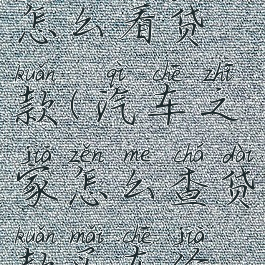 怎么看贷
kuǎn qì chē zhī
款(汽车之
jiā zěn me chá dài
家怎么查贷
kuǎn mǎi chē jiā